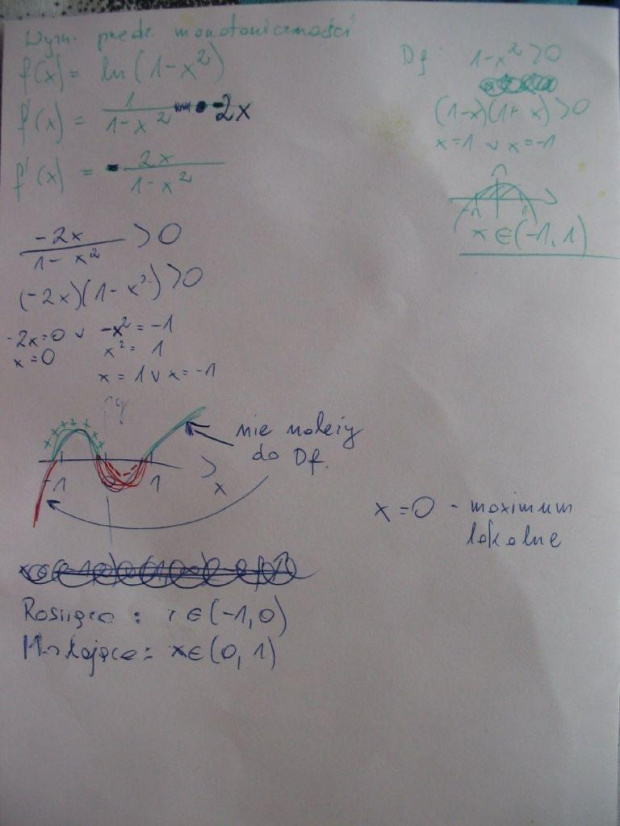 Wyzn. przedz. monotoniczności
f(x) = ln(1-x²)
f'(x) = 1/(1-x²) · -2x
f'(x) = -2x/(1-x²)
Df 1-x²>0
(1-x)(1+x)>0
x=1 ∨ x=-1
-1 1
x∈(-1,1)
-2x/(1-x²) >0
(-2x)(1-x²)>0
-2x=0 ∨ -x²=-1
x=0 x²=1
x=1 ∨ x=-1
y
nie należy
do Df.
-1 1 x
x=0 - maximum
lokalne
Rosnąca: x∈(-1,0)
Malejąca: x∈(0,1)